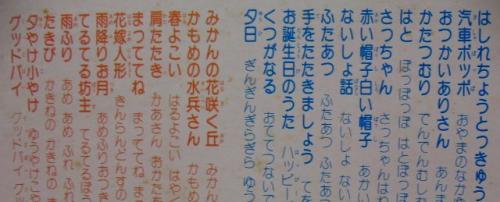 はしれちょうとっきゅう
汽車ポッポ おやまのなか
おつかいありさん あんま
かたつむり てんでんむし
はと ぽっぽっぽ はとぽっ
さっちゃん さっちゃんはね
赤い帽子白い帽子 あかい
ないしょ話 ないしょ ない
ふたあつ ふたあつ ふたあ
手をたたきましょう てを
お誕生日のうた ハッピー
くつがなる おててつないで
夕日 ぎんぎんぎらぎら ゆう
みかんの花咲く丘 みかん
かもめの水兵さん かもめ
春よこい はるよこい はやく
肩たたき かあさん おかた
まっててね まっててね ま
花嫁人形 きんらんどんすの
雨降りお月 あめふりおつき
てるてる坊主 てるてるぼう
雨ふり あめ あめ ふれ ふれ
たきび かきねの かきねの
夕やけ小やけ ゆうやけこや
グッドバイ グッドバイ グッ